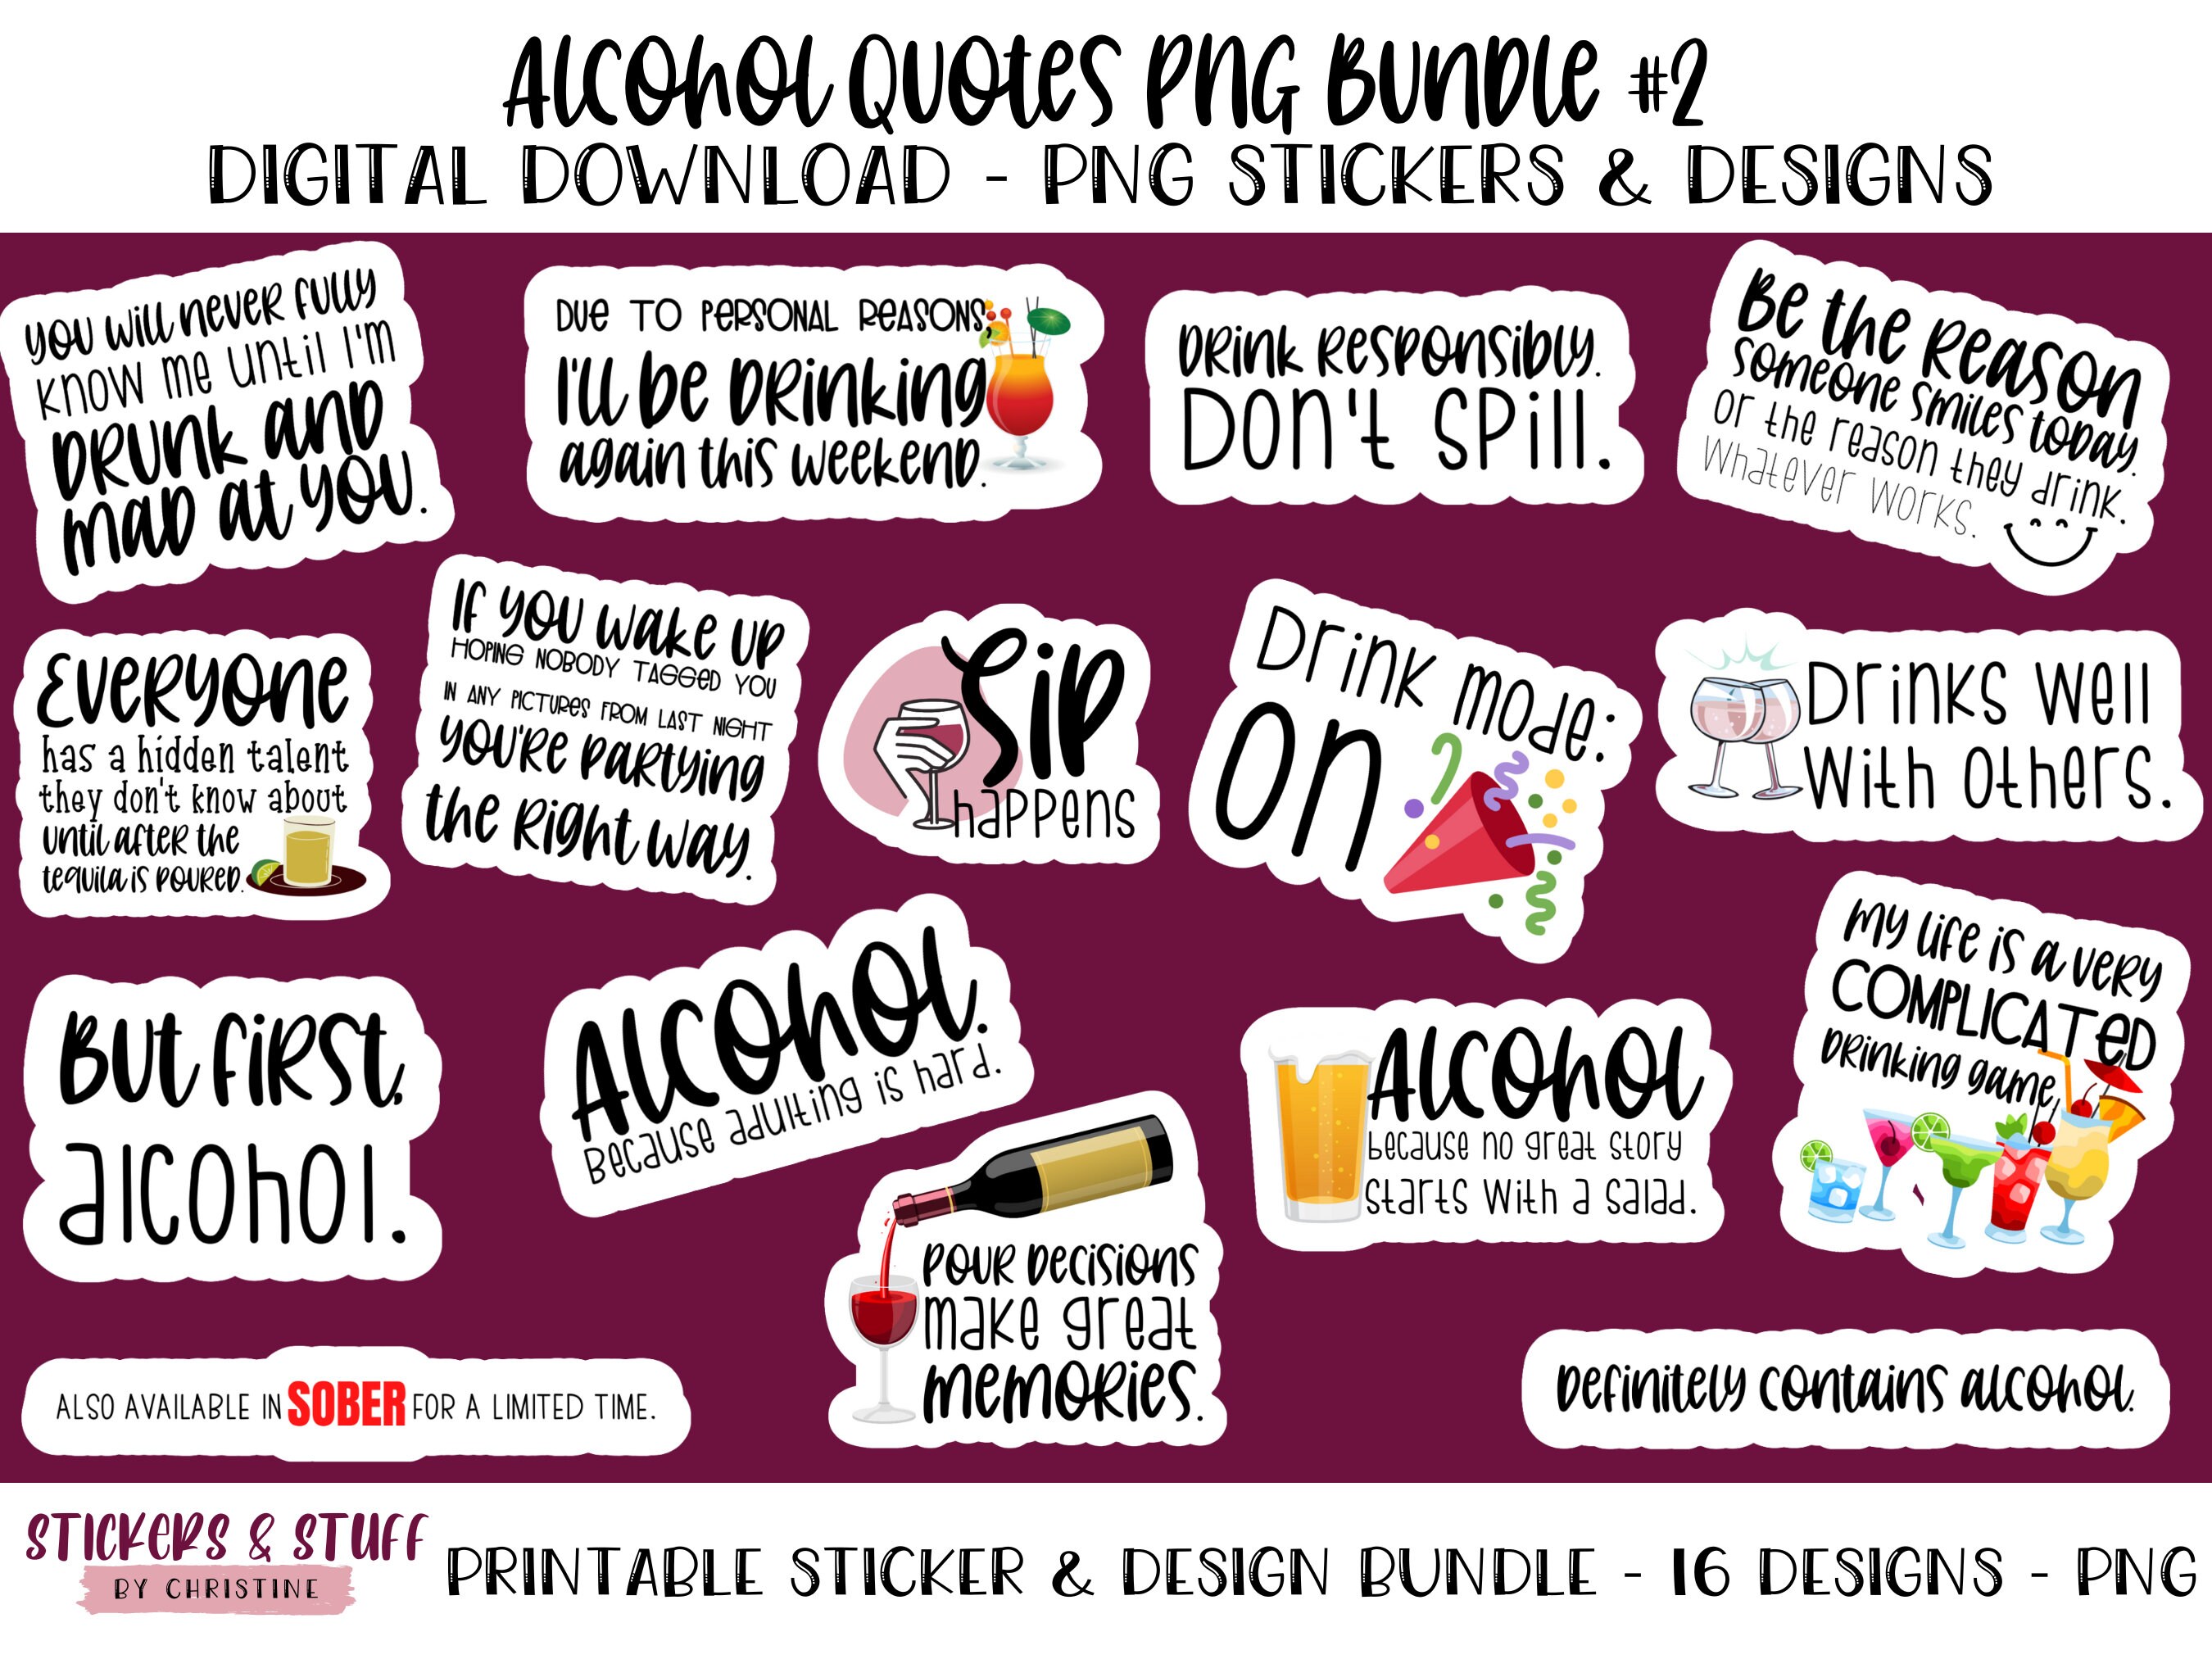 Alcohol Quotes PNG Bundle #2
DIGITAL DOWNLOAD - PNG STICKERS & DESIGNS
You will never fully
know me until I'm
drunk and
mad at you.
Due to personal reasons,
I'll be drinking
again this weekend.
Drink responsibly.
Don't spill.
Be the reason
someone smiles today.
Or the reason they drink.
Whatever works.
Everyone
has a hidden talent
they don't know about
until after the
tequila is poured.
If you wake up
hoping nobody tagged you
in any pictures from last night
you're partying
the right way.
Sip
happens
Drink mode:
On
Drinks well
With others.
But first,
alcohol.
Alcohol.
Because adulting is hard.
Alcohol
because no great story
starts with a salad.
My life is a very
COMPLICATED
drinking game.
Pour decisions
make great
memories.
ALSO AVAILABLE IN SOBER FOR A LIMITED TIME.
Definitely contains alcohol.
STICKERS & STUFF
BY CHRISTINE
PRINTABLE STICKER & DESIGN BUNDLE - 16 DESIGNS - PNG